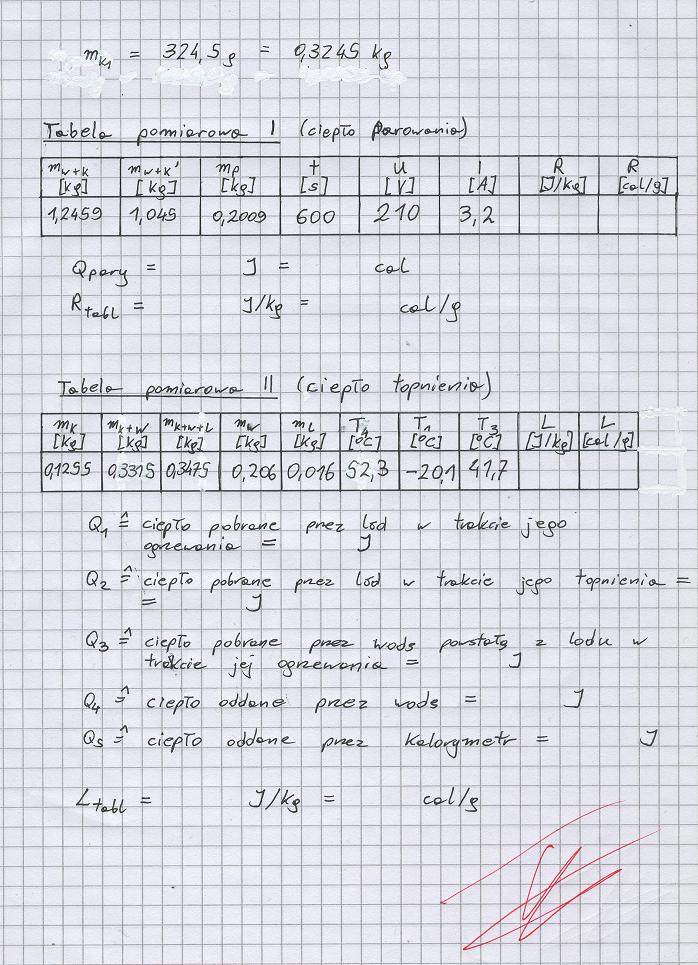 mK1 = 324,5 g = 0,3245 kg
Tabela pomiarowa I (ciepło parowania)
mw+k [kg] mw+k' [kg] mp [kg] t [s] U [V] I [A] R [J/kg] R [cal/g]
1,2459 1,045 0,2009 600 210 3,2
Qpary = J = cal
Rtabl = J/kg = cal/g
Tabela pomiarowa II (ciepło topnienia)
mK [kg] mk+w [kg] mk+w+L [kg] mw [kg] mL [kg] T4 [°C] T1 [°C] T3 [°C] L [J/kg] L [cal/g]
0,1255 0,3315 0,3475 0,206 0,016 52,3 -20,1 41,7
Q1 ≙ ciepło pobrane przez lód w trakcie jego
ogrzewania = J
Q2 ≙ ciepło pobrane przez lód w trakcie jego topnienia =
= J
Q3 ≙ ciepło pobrane przez wodę powstałą z lodu w
trakcie jej ogrzewania = J
Q4 ≙ ciepło oddane przez wodę = J
Q5 ≙ ciepło oddane przez kalorymetr = J
Ltabl = J/kg = cal/g